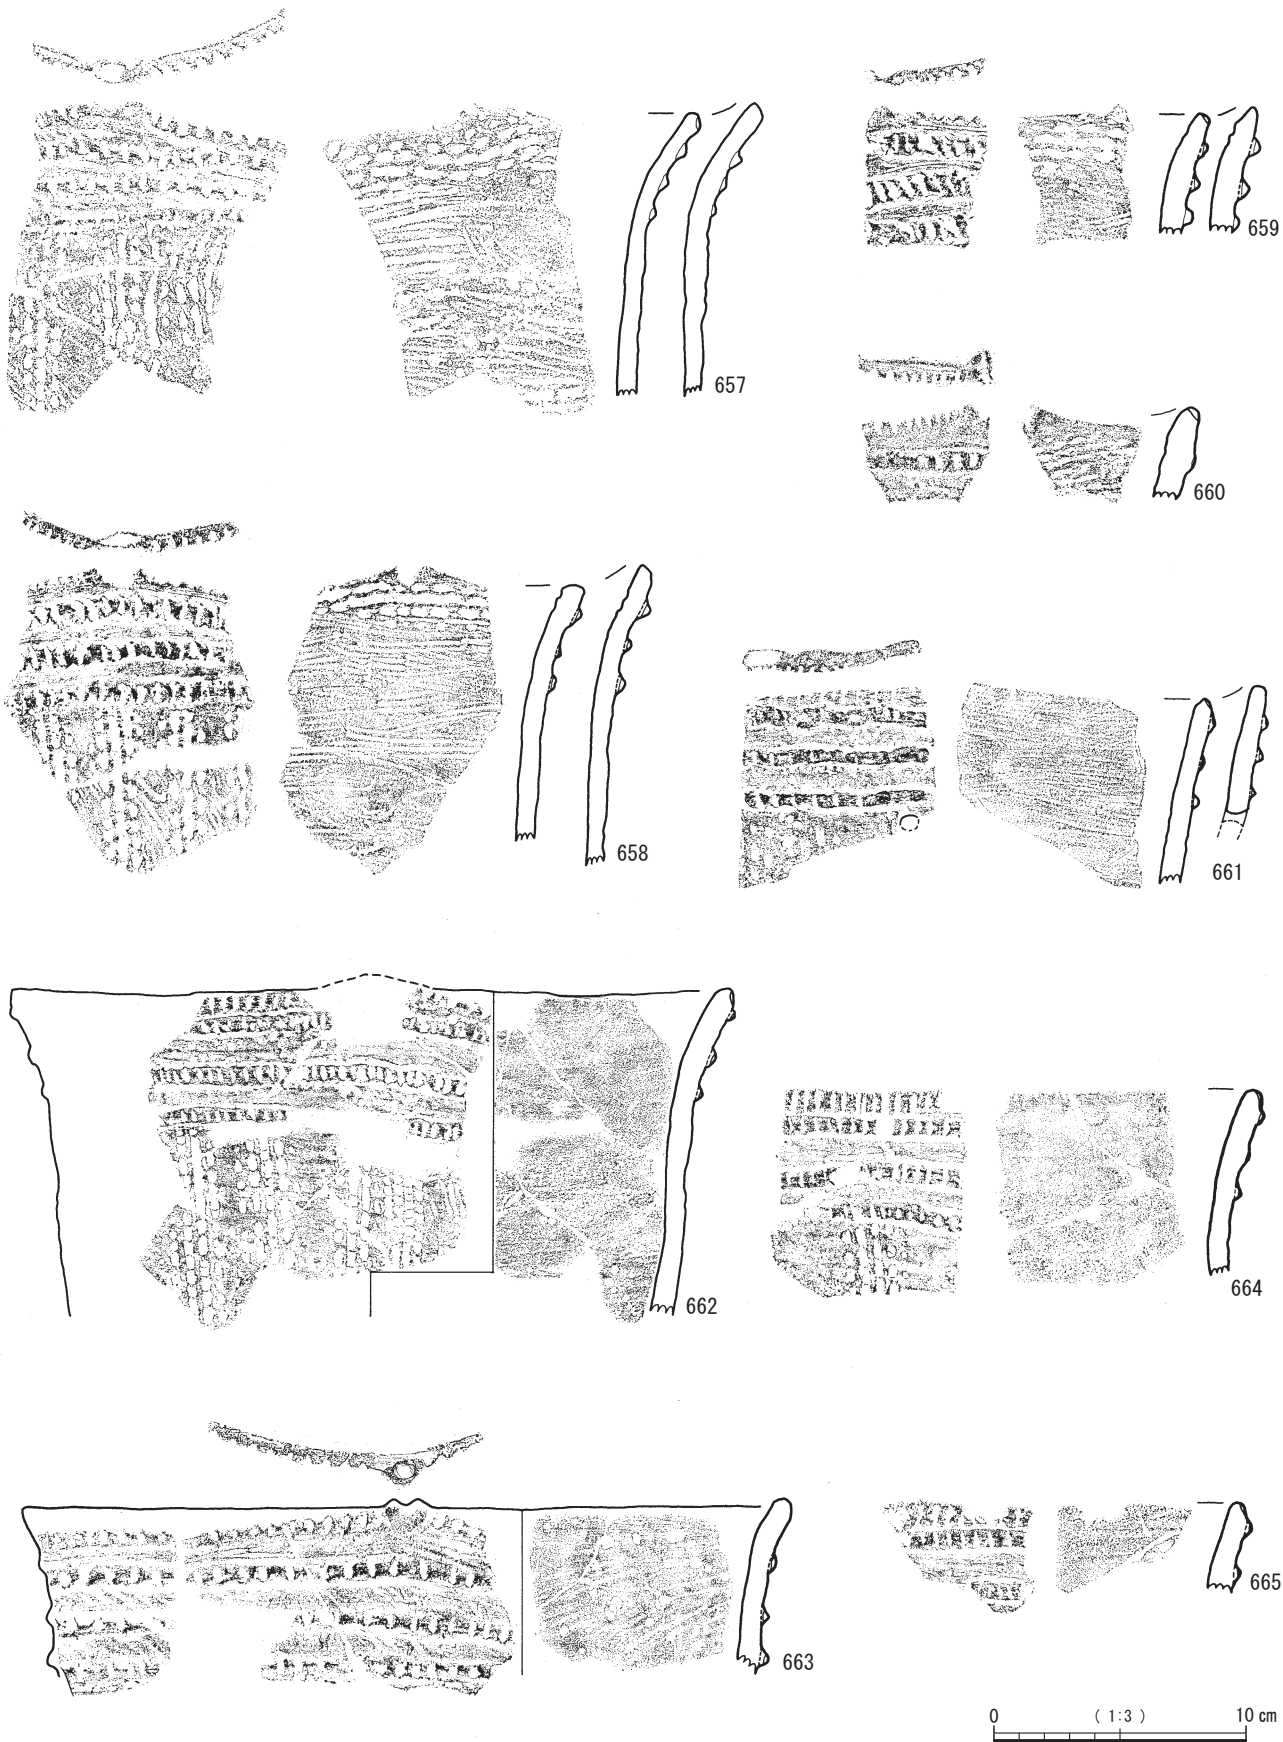 657
659
660
658
661
662
664
663
665
0 ( 1:3 ) 10 cm